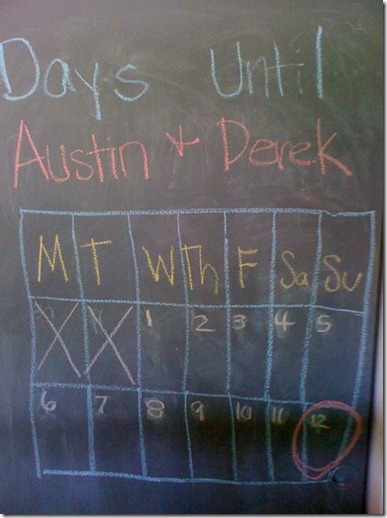 Days Until
Austin + Derek
M T W Th F Sa Su
1 2 3 4 5
6 7 8 9 10 11 12